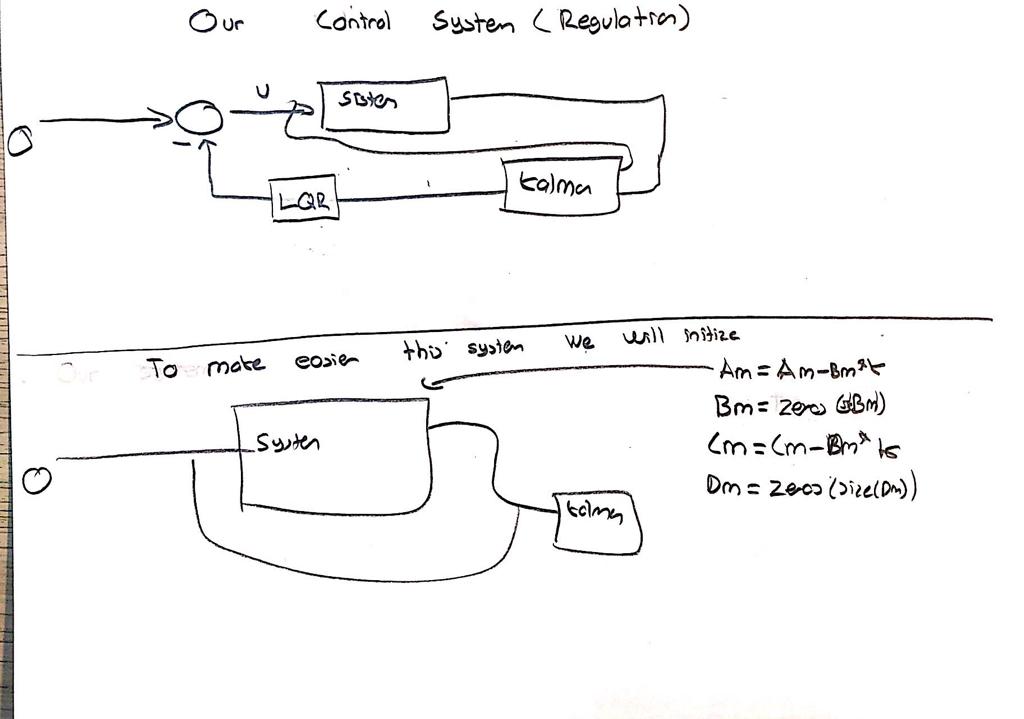 Our Control System (Regulation)
U
Sisten
0
-
LQR
kalman
To make easier this system we will initize
Am = Am-Bm*k
Bm = zeros
System
Cm = Cm-Dm*k
0
Dm = zeros(size(Dm))
kalman